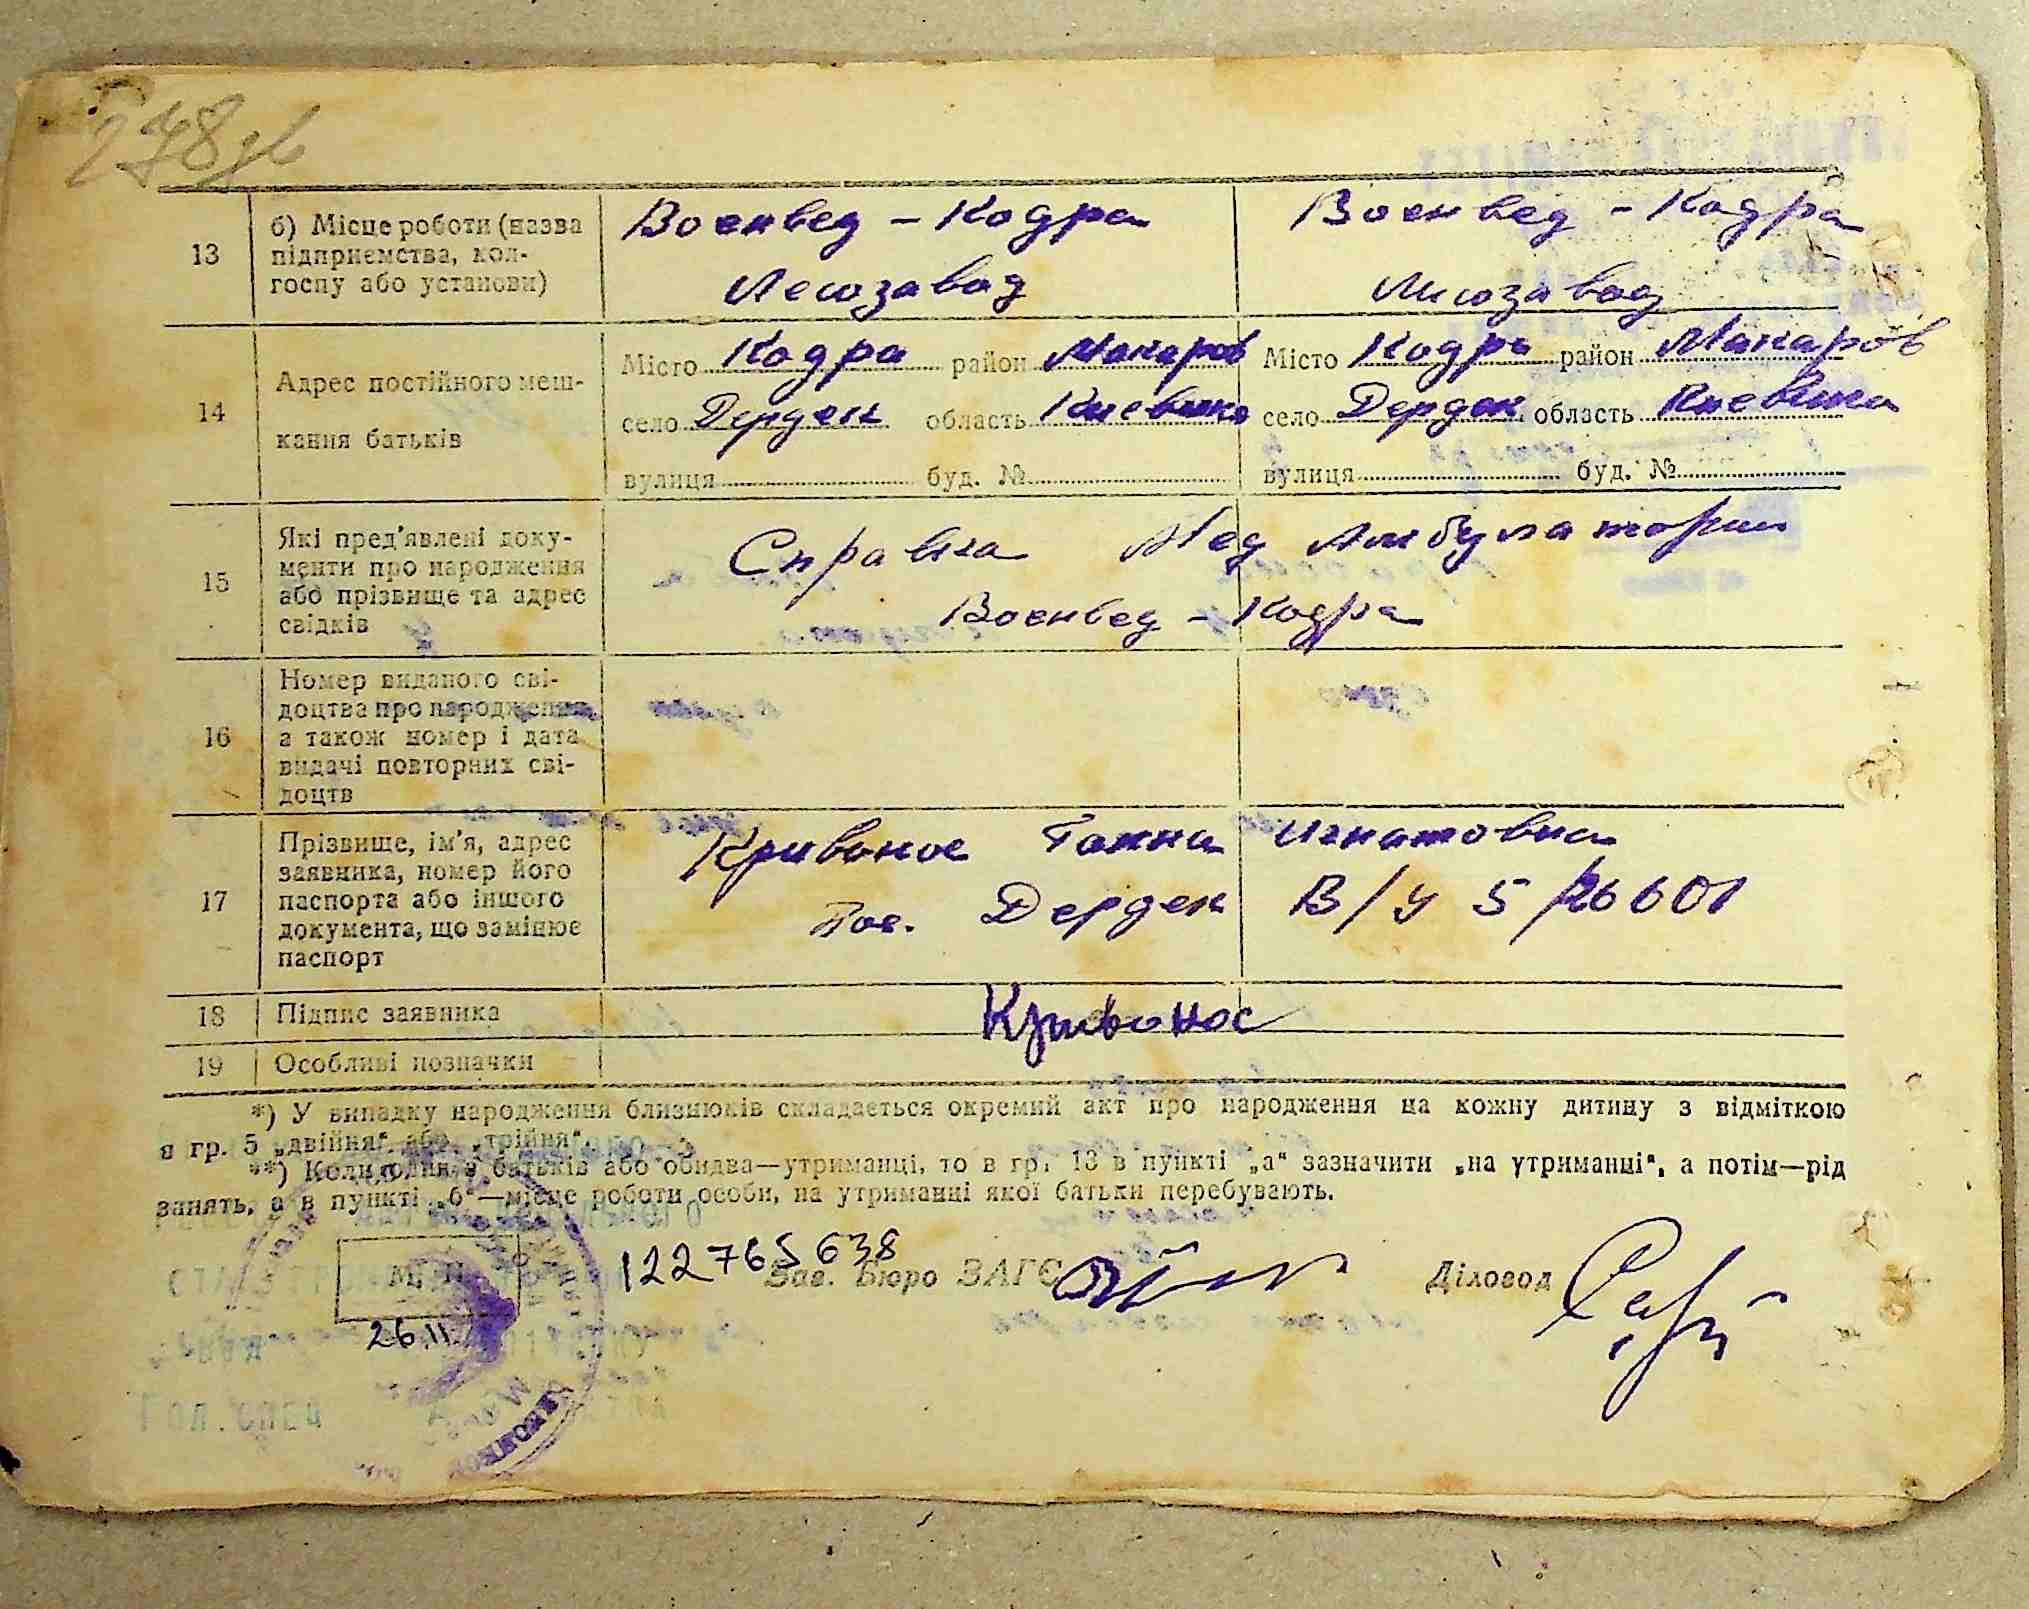 278
13
б) Місце роботи (назва підприємства, колгоспу або установи)
Военвед - Кодра
Лесозавод
Военвед - Кодра
Лисозавод
14
Адрес постійного мешкання батьків
Місто Кодра район Макаров
село Дерден область Киевска
вулиця буд. №
Місто Кодра район Макаров
село Дерден область Киевска
вулиця буд. №
15
Які пред'явлені документи про народження або прізвище та адрес свідків
Справка Мед Амбулатории
Военвед - Кодра
16
Номер виданого свідоцтва про народження а також номер і дата видачі повторних свідоцтв
17
Прізвище, ім'я, адрес заявника, номер його паспорта або іншого документа, що замінює паспорт
Кривонос Ганна Игнатовна
Пос. Дерден В/у 5/26601
18
Підпис заявника
Кривонос
19
Особливі позначки
*) У випадку народження близнюків складається окремий акт про народження на кожну дитину з відміткою
в гр. 5 „двійня" або „трійня".
**) Коли один з батьків або обидва—утриманці, то в гр. 13 в пункті „а" зазначити „на утриманні", а потім—рід
занять, а в пункті „б"—місце роботи особи, на утриманні якої батьки перебувають.
М. П.
122765638
26.11.
Зав. Бюро ЗАГС
Діловод